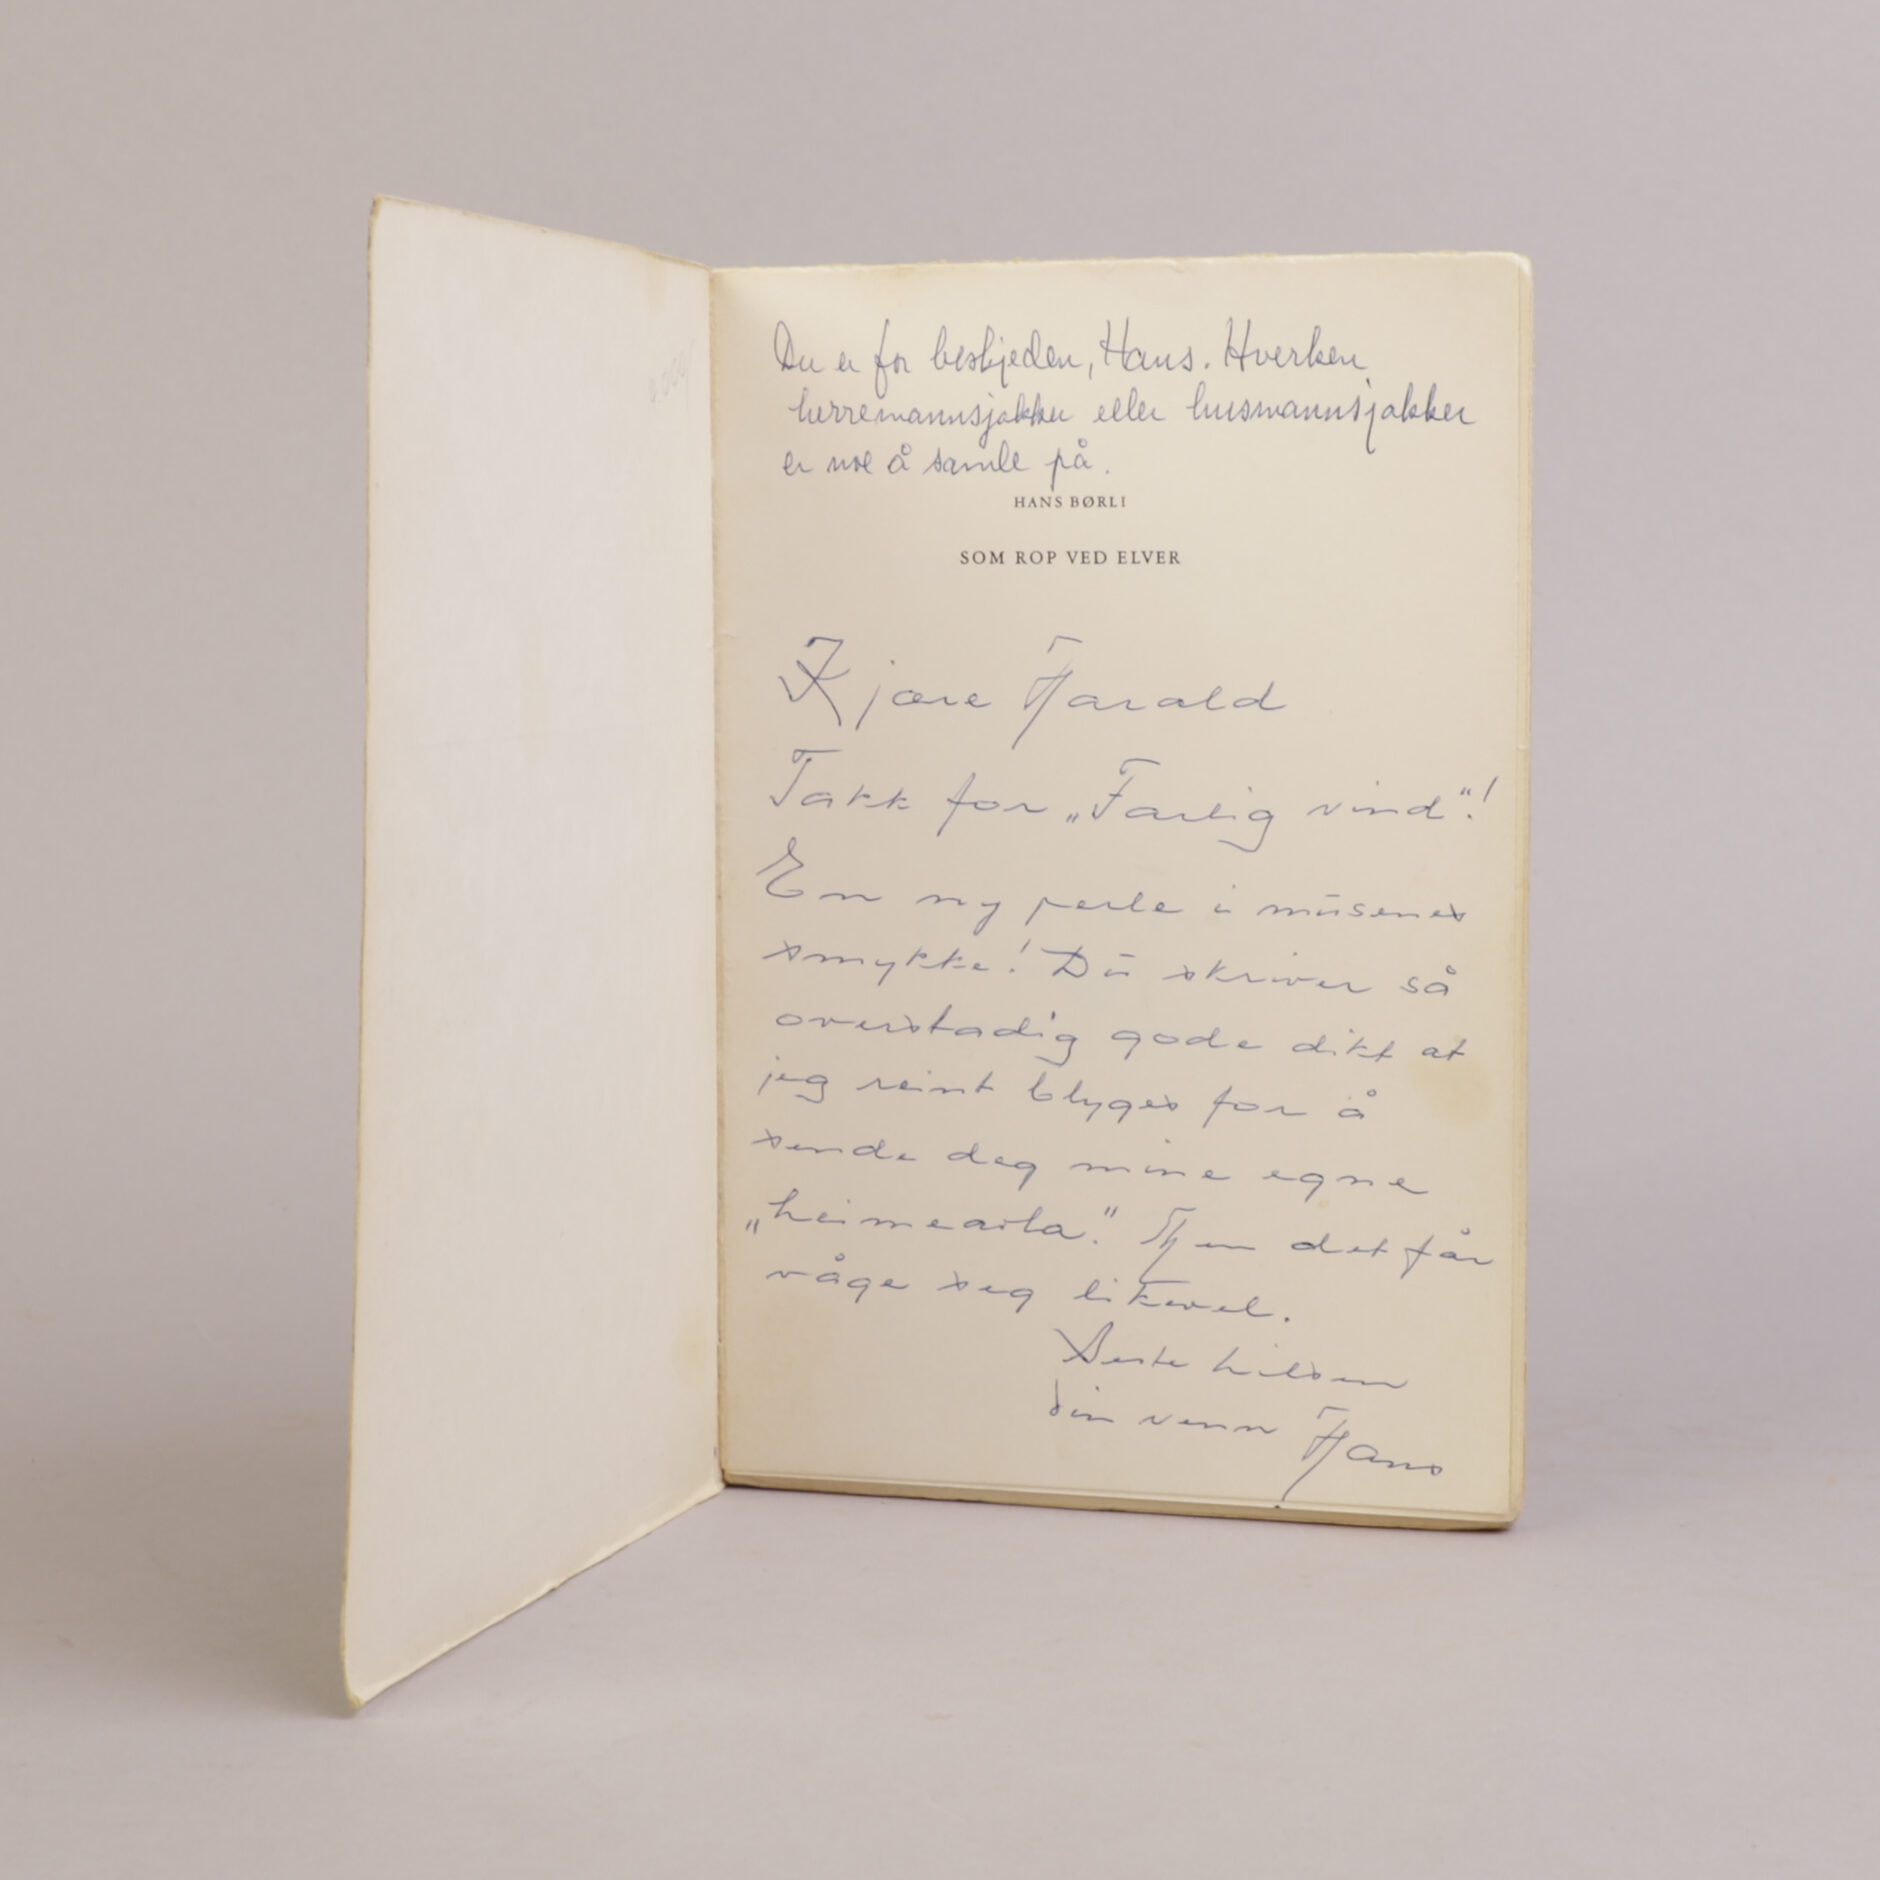 Du er for beskjeden, Hans. Hverken
herremannsjakker eller husmannsjakker
er noe å samle på.
HANS BØRLI
SOM ROP VED ELVER
Kjære Harald
Takk for „Farlig vind“!
En ny perle i musenes
smykke! Du skriver så
overstadig gode dikt at
jeg reint blyges for å
sende deg mine egne
„heimeavla“. Men det får
våge seg likevel.
Beste hilsen
din venn Hans